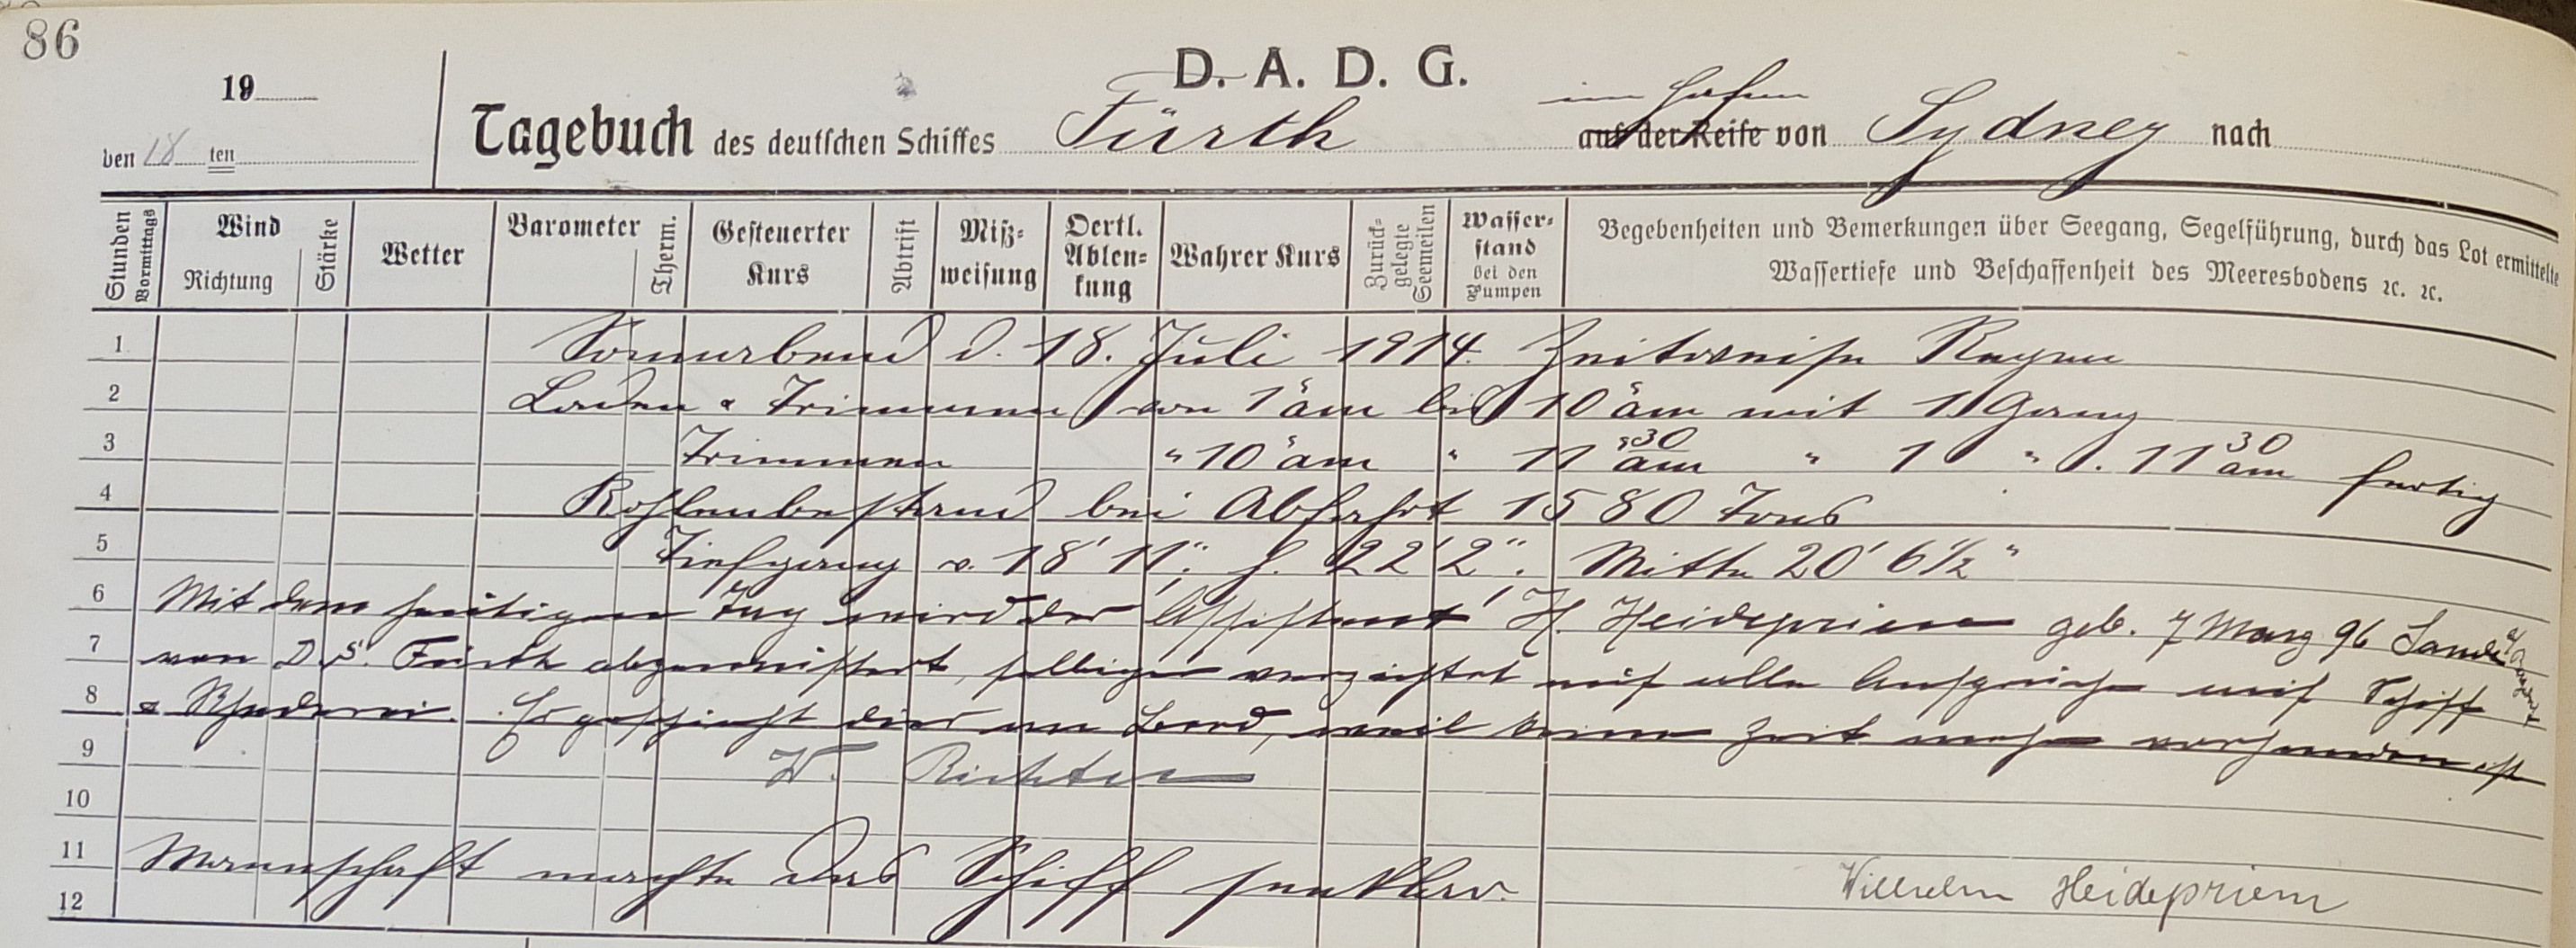 86
D. A. D. G.
19
den 18 ten
Tagebuch des deutschen Schiffes Fürth im Hafen auf der Reise von Sydney nach
Stunden Vormittags
Wind
Richtung
Stärke
Wetter
Barometer
Therm.
Gesteuerter Kurs
Abtrift
Miß-weisung
Oertl. Ablen-kung
Wahrer Kurs
Zurück-gelegte Seemeilen
Wasser-stand bei den Pumpen
Begebenheiten und Bemerkungen über Seegang, Segelführung, durch das Lot ermittelte
Wassertiefe und Beschaffenheit des Meeresbodens ꝛc. ꝛc.
1 Sonnabend d. 18. Juli 1914. Zeitweise Regen
2 Laden & Trimmen von 1 am bis 10 am mit 1 Gang
3 Trimmen " 10 am " 11 30 am " 1 " . 11 30 am fertig
4 Kohlenbestand bei Abfahrt 1580 Tons
5 Tiefgang v. 18' 11". h. 22' 2". Mitte 20' 6½"
6 Mit dem heutigen Tag wird der Assistent H. Heidepriem geb. 7 März 96
7 von D.S. Fürth abgemustert, selbiger verzichtet auf alle Ansprüche auf Schiff
8 & Rhederei. Es geschieht dies an Bord, weil keine Zeit mehr vorhanden ist
9 W. Richter
10
11 Mannschaft machte das Schiff seeklar.
12 Wilhelm Heidepriem